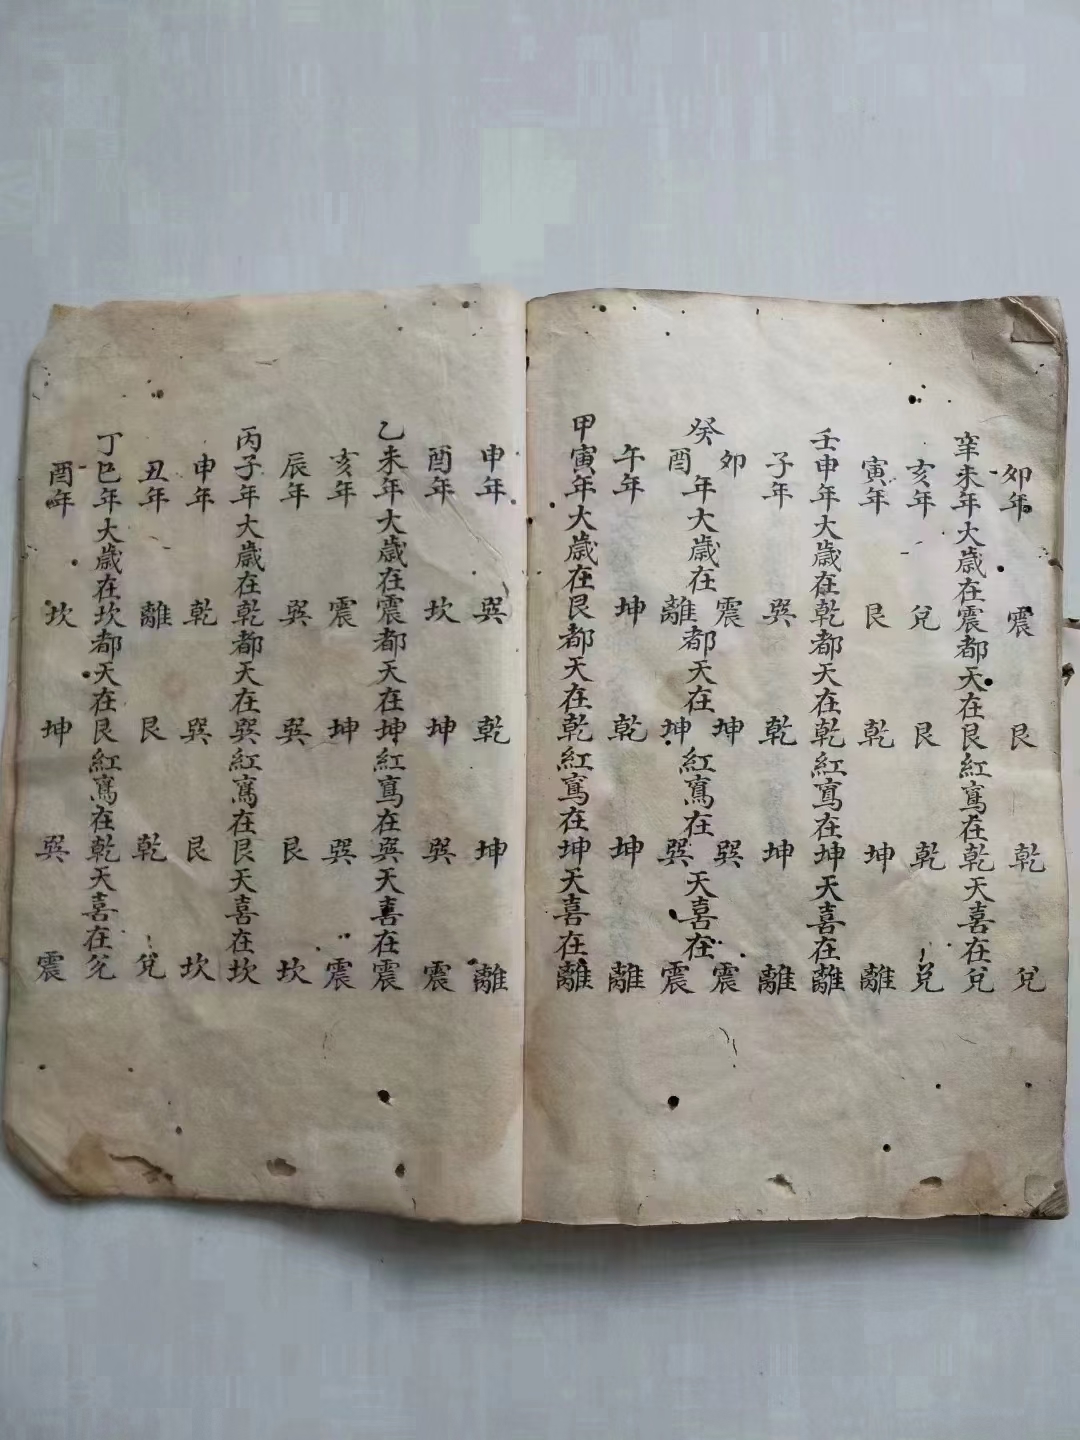 卯年震艮乾兌
辛未年大歲在震都天在艮紅鸾在乾天喜在兌
亥年兌艮乾兌
寅年艮乾坤離
壬申年大歲在乾都天在乾紅鸾在坤天喜在離
子年巽乾坤離
卯震坤巽震
癸酉年大歲在離都天在坤紅鸾在巽天喜在震
午年坤乾坤離
甲寅年大歲在艮都天在乾紅鸾在坤天喜在離
申年巽乾坤離
酉年坎坤巽震
乙未年大歲在震都天在坤紅鸾在巽天喜在震
亥年震坤巽震
辰年巽巽艮坎
丙子年大歲在乾都天在巽紅鸾在艮天喜在坎
申年乾巽艮坎
丑年離艮乾兌
丁巳年大歲在坎都天在艮紅鸾在乾天喜在兌
酉年坎坤巽震